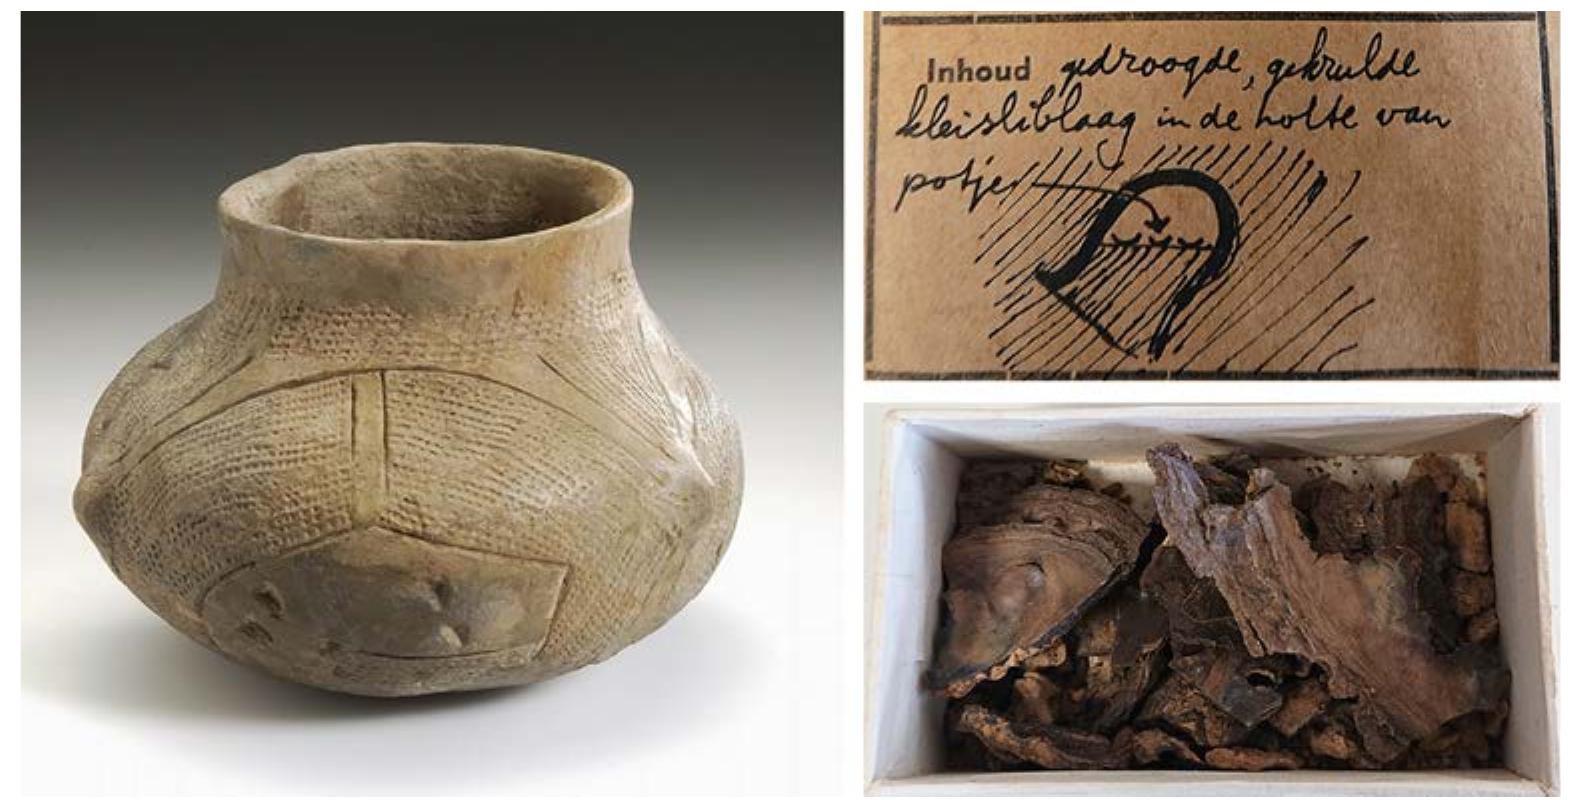 Inhoud gedroogde, gekrulde
kleisliblaag in de holte van
potje